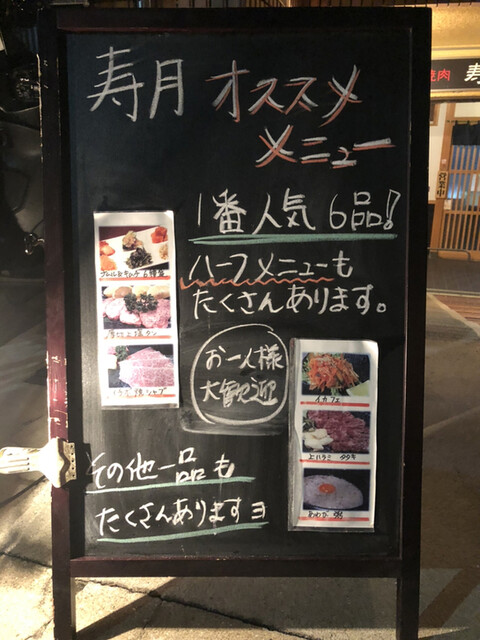 寿月 オススメ
メニュー
1番人気6品!
ハーフメニューも
たくさんあります。
お一人様
大歓迎
イカフェ
上ハラミ タタキ
その他一品も
たくさんありますヨ
焼肉 寿
営業中